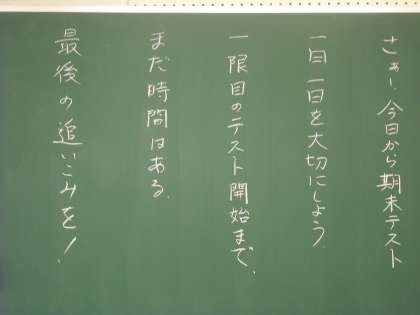 さぁー、今日から期末テスト
一日一日を大切にしよう.
一限目のテスト開始まで、
まだ時間はある.
最後の追いこみを!